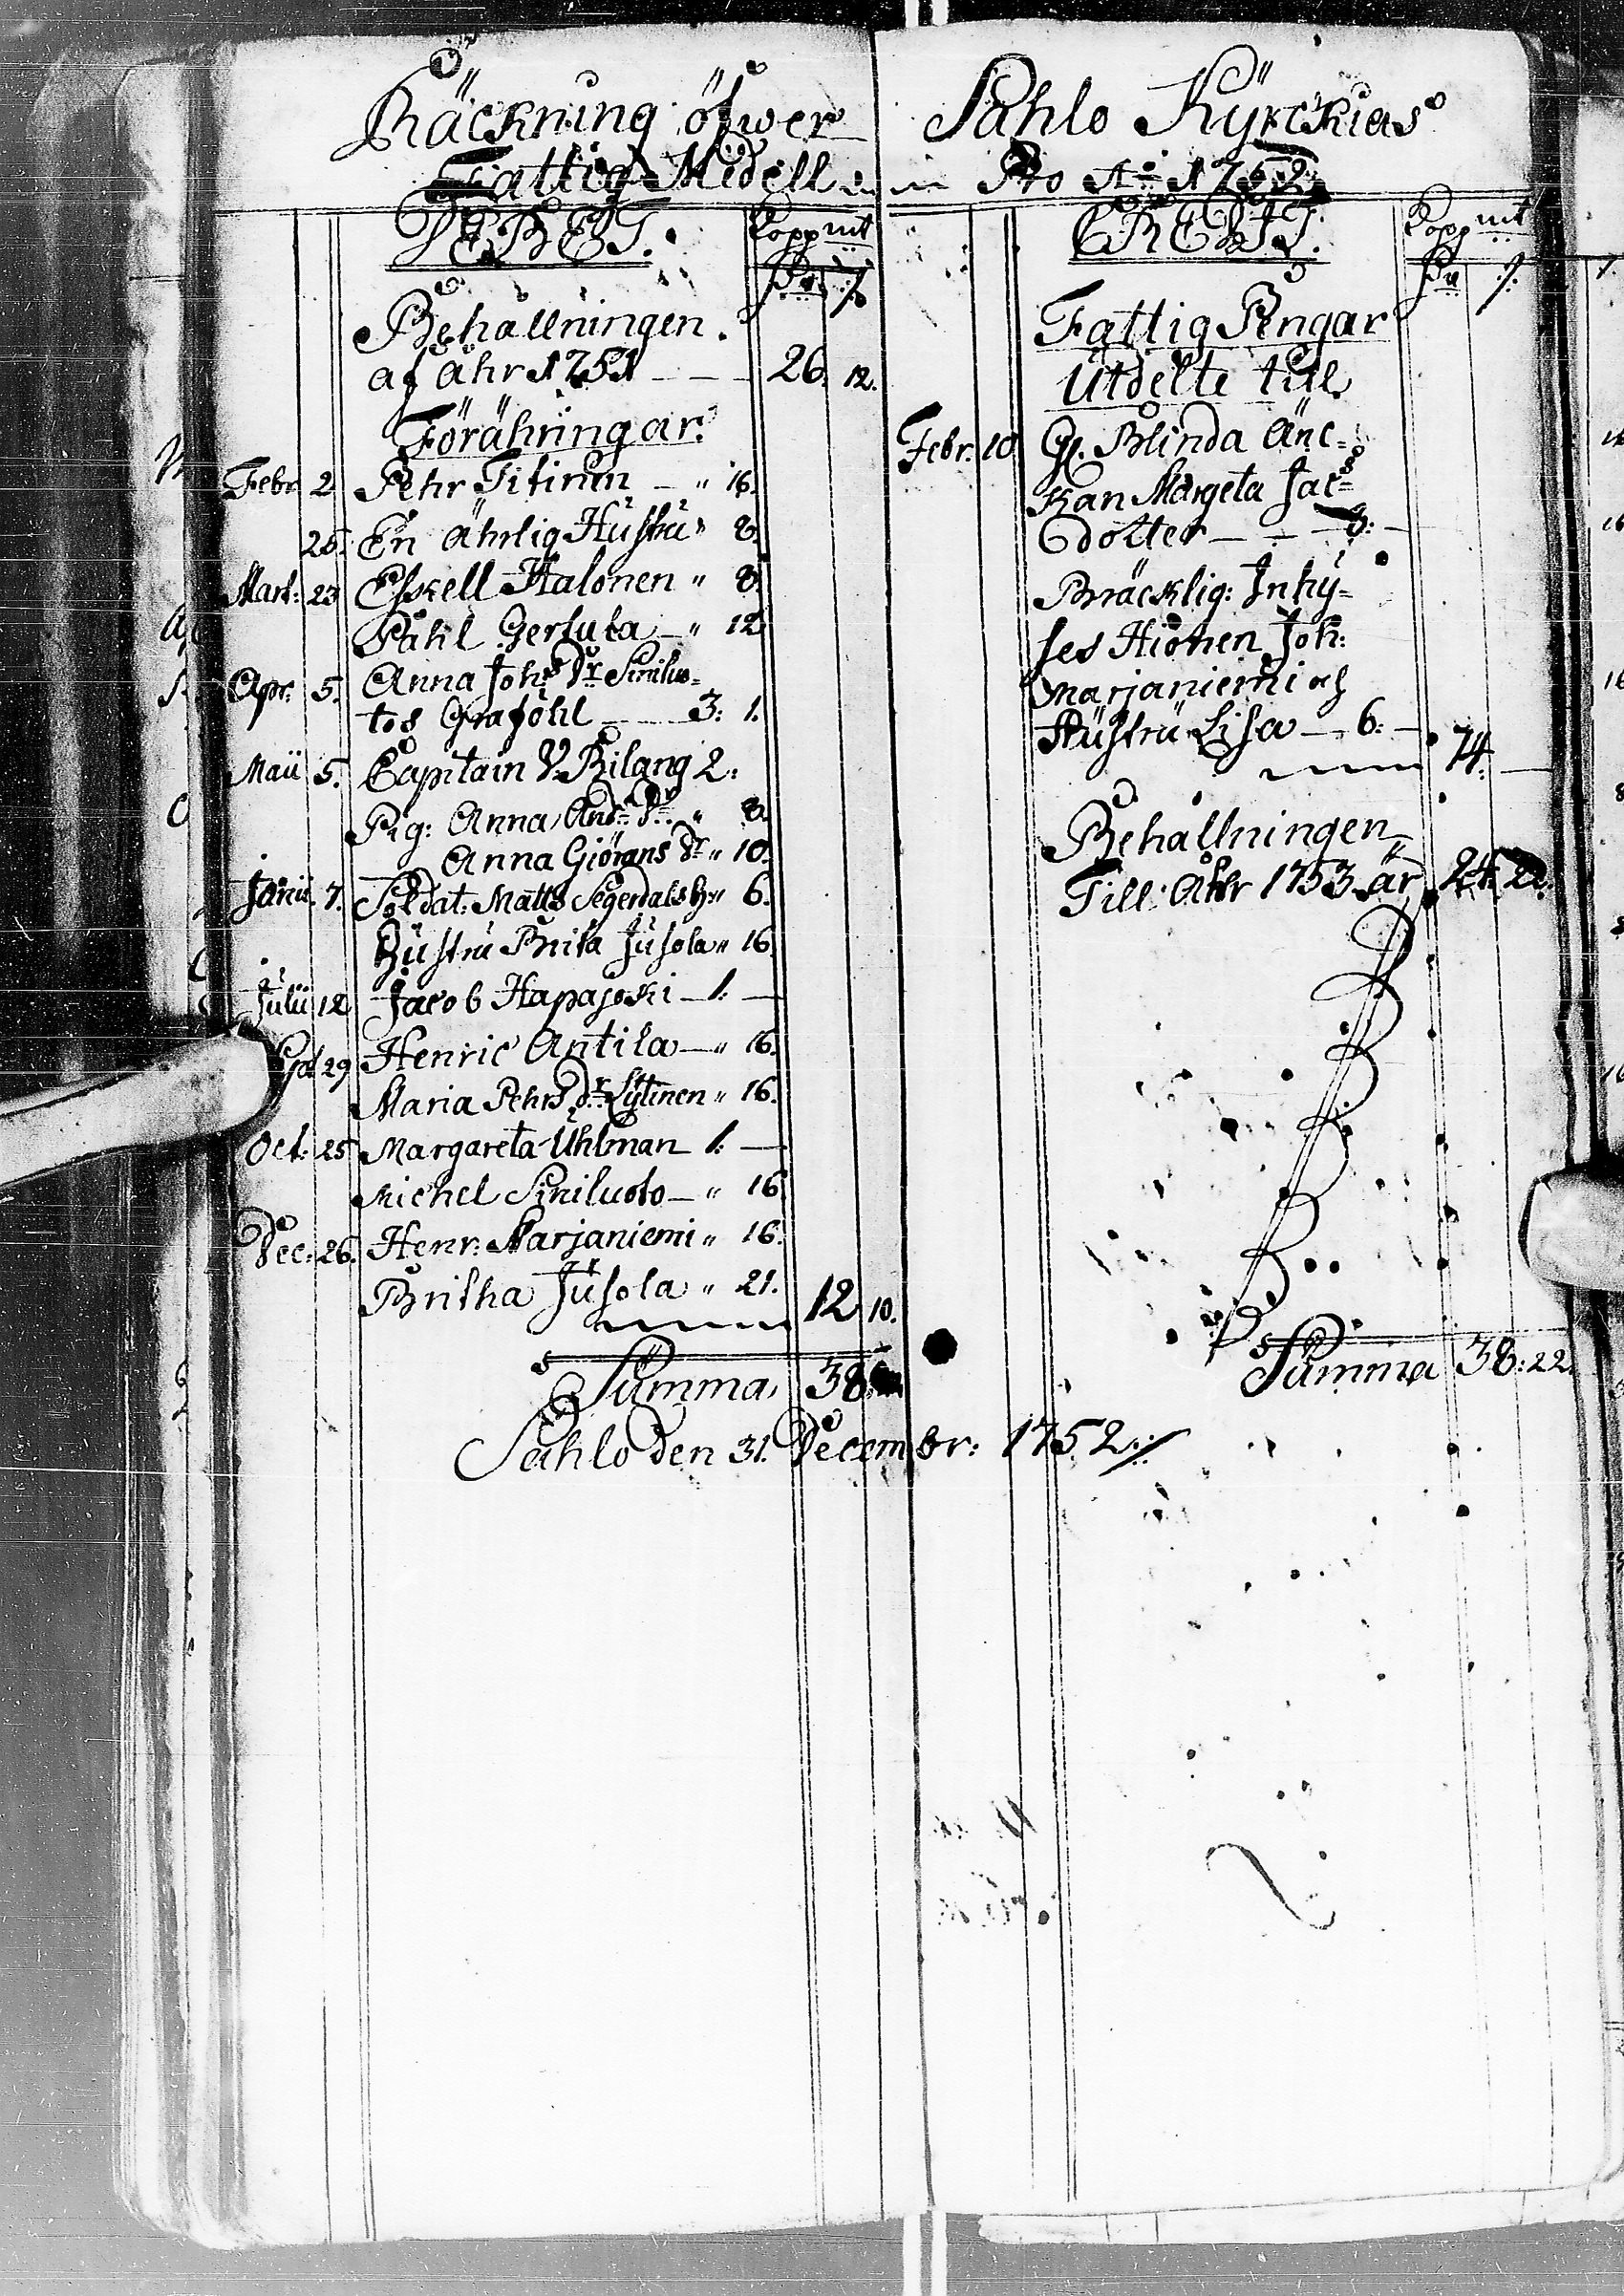 Räckning öfwer Pahlo Kyrckias
Fattig Medell Pro A:o 1752
DEBET. Kopp mt
Behållningen
af åhr 1751 — 26. 12.
Föräringar.
Febr. 2 Pehr Titinen — " 16.
25. En ährlig Hustru " 8.
Mart: 23 Eskell Halonen " 8.
Påhl Gerluka — " 12
Apr. 5. Anna Joh:s Dr Siniluo=
tos Graföhl — 3: 1.
Maii 5. Capitain V. Bilang 2:
Pig: Anna And: Dr " 8.
Anna Giörans Dr " 10.
Junii. 7. Soldat: Matts Segerdals h: " 6.
Hustru Brita Jusola " 16.
Julii 12 Jacob Hapajoki — 1: —
29 Henric Antila — " 16.
Maria Pehrs Dr Lytinen " 16.
Oct: 25 Margareta Uhlman 1: —
Michel Siniluoto — " 16
Dec: 26. Henr: Marjaniemi " 16.
Britha Jusola " 21. 12 10.
Summa 38
CREDIT. Kopp mt
Fattig Pengar
Utdelte till
Febr. 10 Gl. Blinda Änc=
kan Margeta Jac=
dotter — 8: —
Bräcklig: Inhy=
ses Hionen Joh:
Marjaniemi och
Hustru Lisa — 6: —
14. —
Behållningen
Till Åhr 1753 är 24: 22.
Summa 38: 22.
Pahlo den 31. Decembr: 1752.